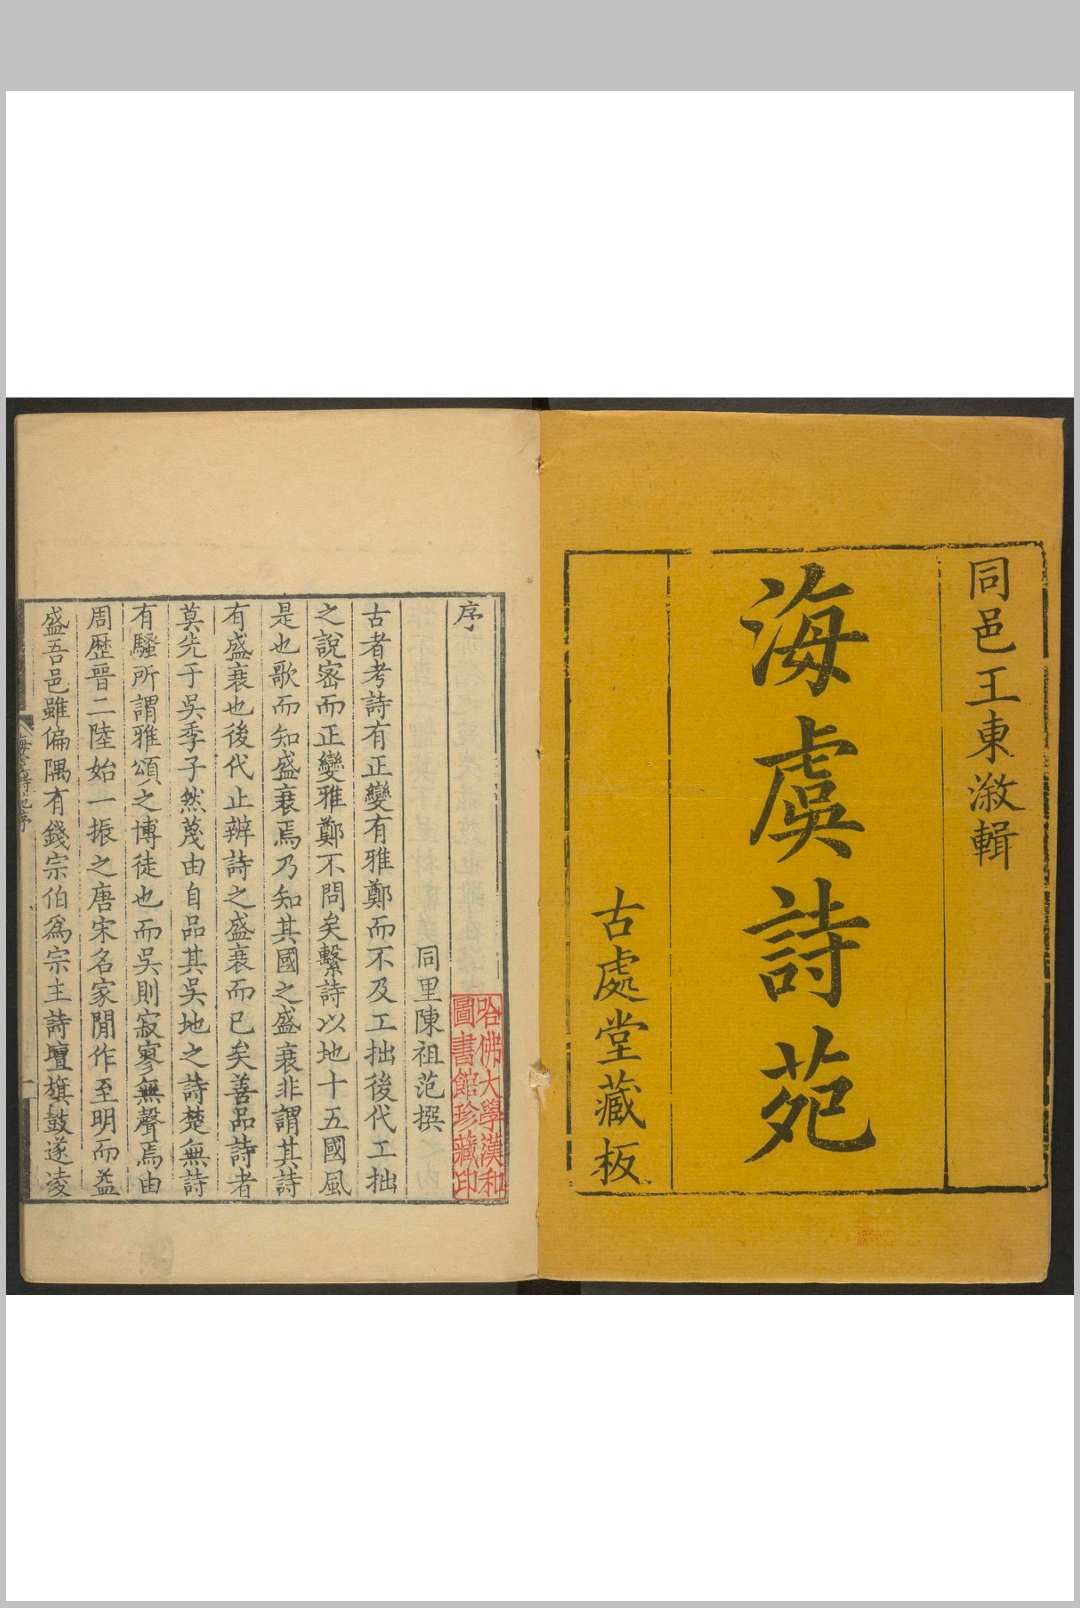 同邑王東漵輯
海虞詩苑
古處堂藏板
序
同里陳祖范撰
古者考詩有正變有雅鄭而不及工拙後代工拙
之說密而正變雅鄭不問矣繫詩以地十五國風
是也歌而知盛衰焉乃知其國之盛衰非謂其詩
有盛衰也後代止辨詩之盛衰而已矣善品詩者
莫先于吳季子然蔑由自品其吳地之詩楚無詩
有騷所謂雅頌之博徒也而吳則寂寥無聲焉由
周歷晉二陸始一振之唐宋名家閒作至明而益
盛吾邑雖偏隅有錢宗伯為宗主詩壇旗鼓遂凌
哈佛大學漢和
圖書館珍藏印